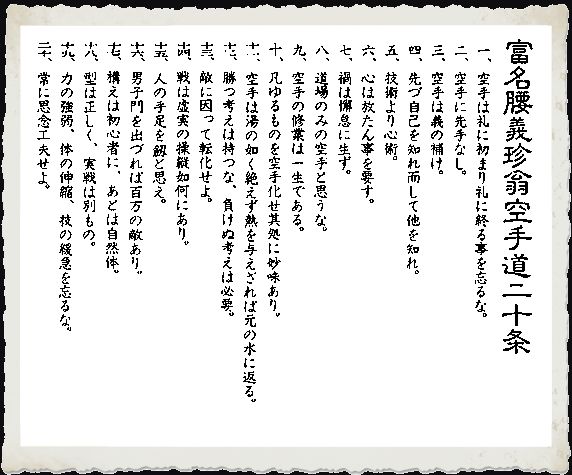 富名腰義珍翁空手道二十条
一、空手は礼に初まり礼に終る事を忘るな。
二、空手に先手なし。
三、空手は義の補け。
四、先づ自己を知れ而して他を知れ。
五、技術より心術。
六、心は放たん事を要す。
七、禍は懈怠に生ず。
八、道場のみの空手と思うな。
九、空手の修業は一生である。
十、凡ゆるものを空手化せ其処に妙味あり。
十一、空手は湯の如く絶えず熱を与えざれば元の水に返る。
十二、勝つ考えは持つな、負けぬ考えは必要。
十三、敵に因って転化せよ。
十四、戦は虚実の操縦如何にあり。
十五、人の手足を劔と思え。
十六、男子門を出づれば百万の敵あり。
十七、構えは初心者に、あとは自然体。
十八、型は正しく、実戦は別もの。
十九、力の強弱、体の伸縮、技の緩急を忘るな。
二十、常に思念工夫せよ。